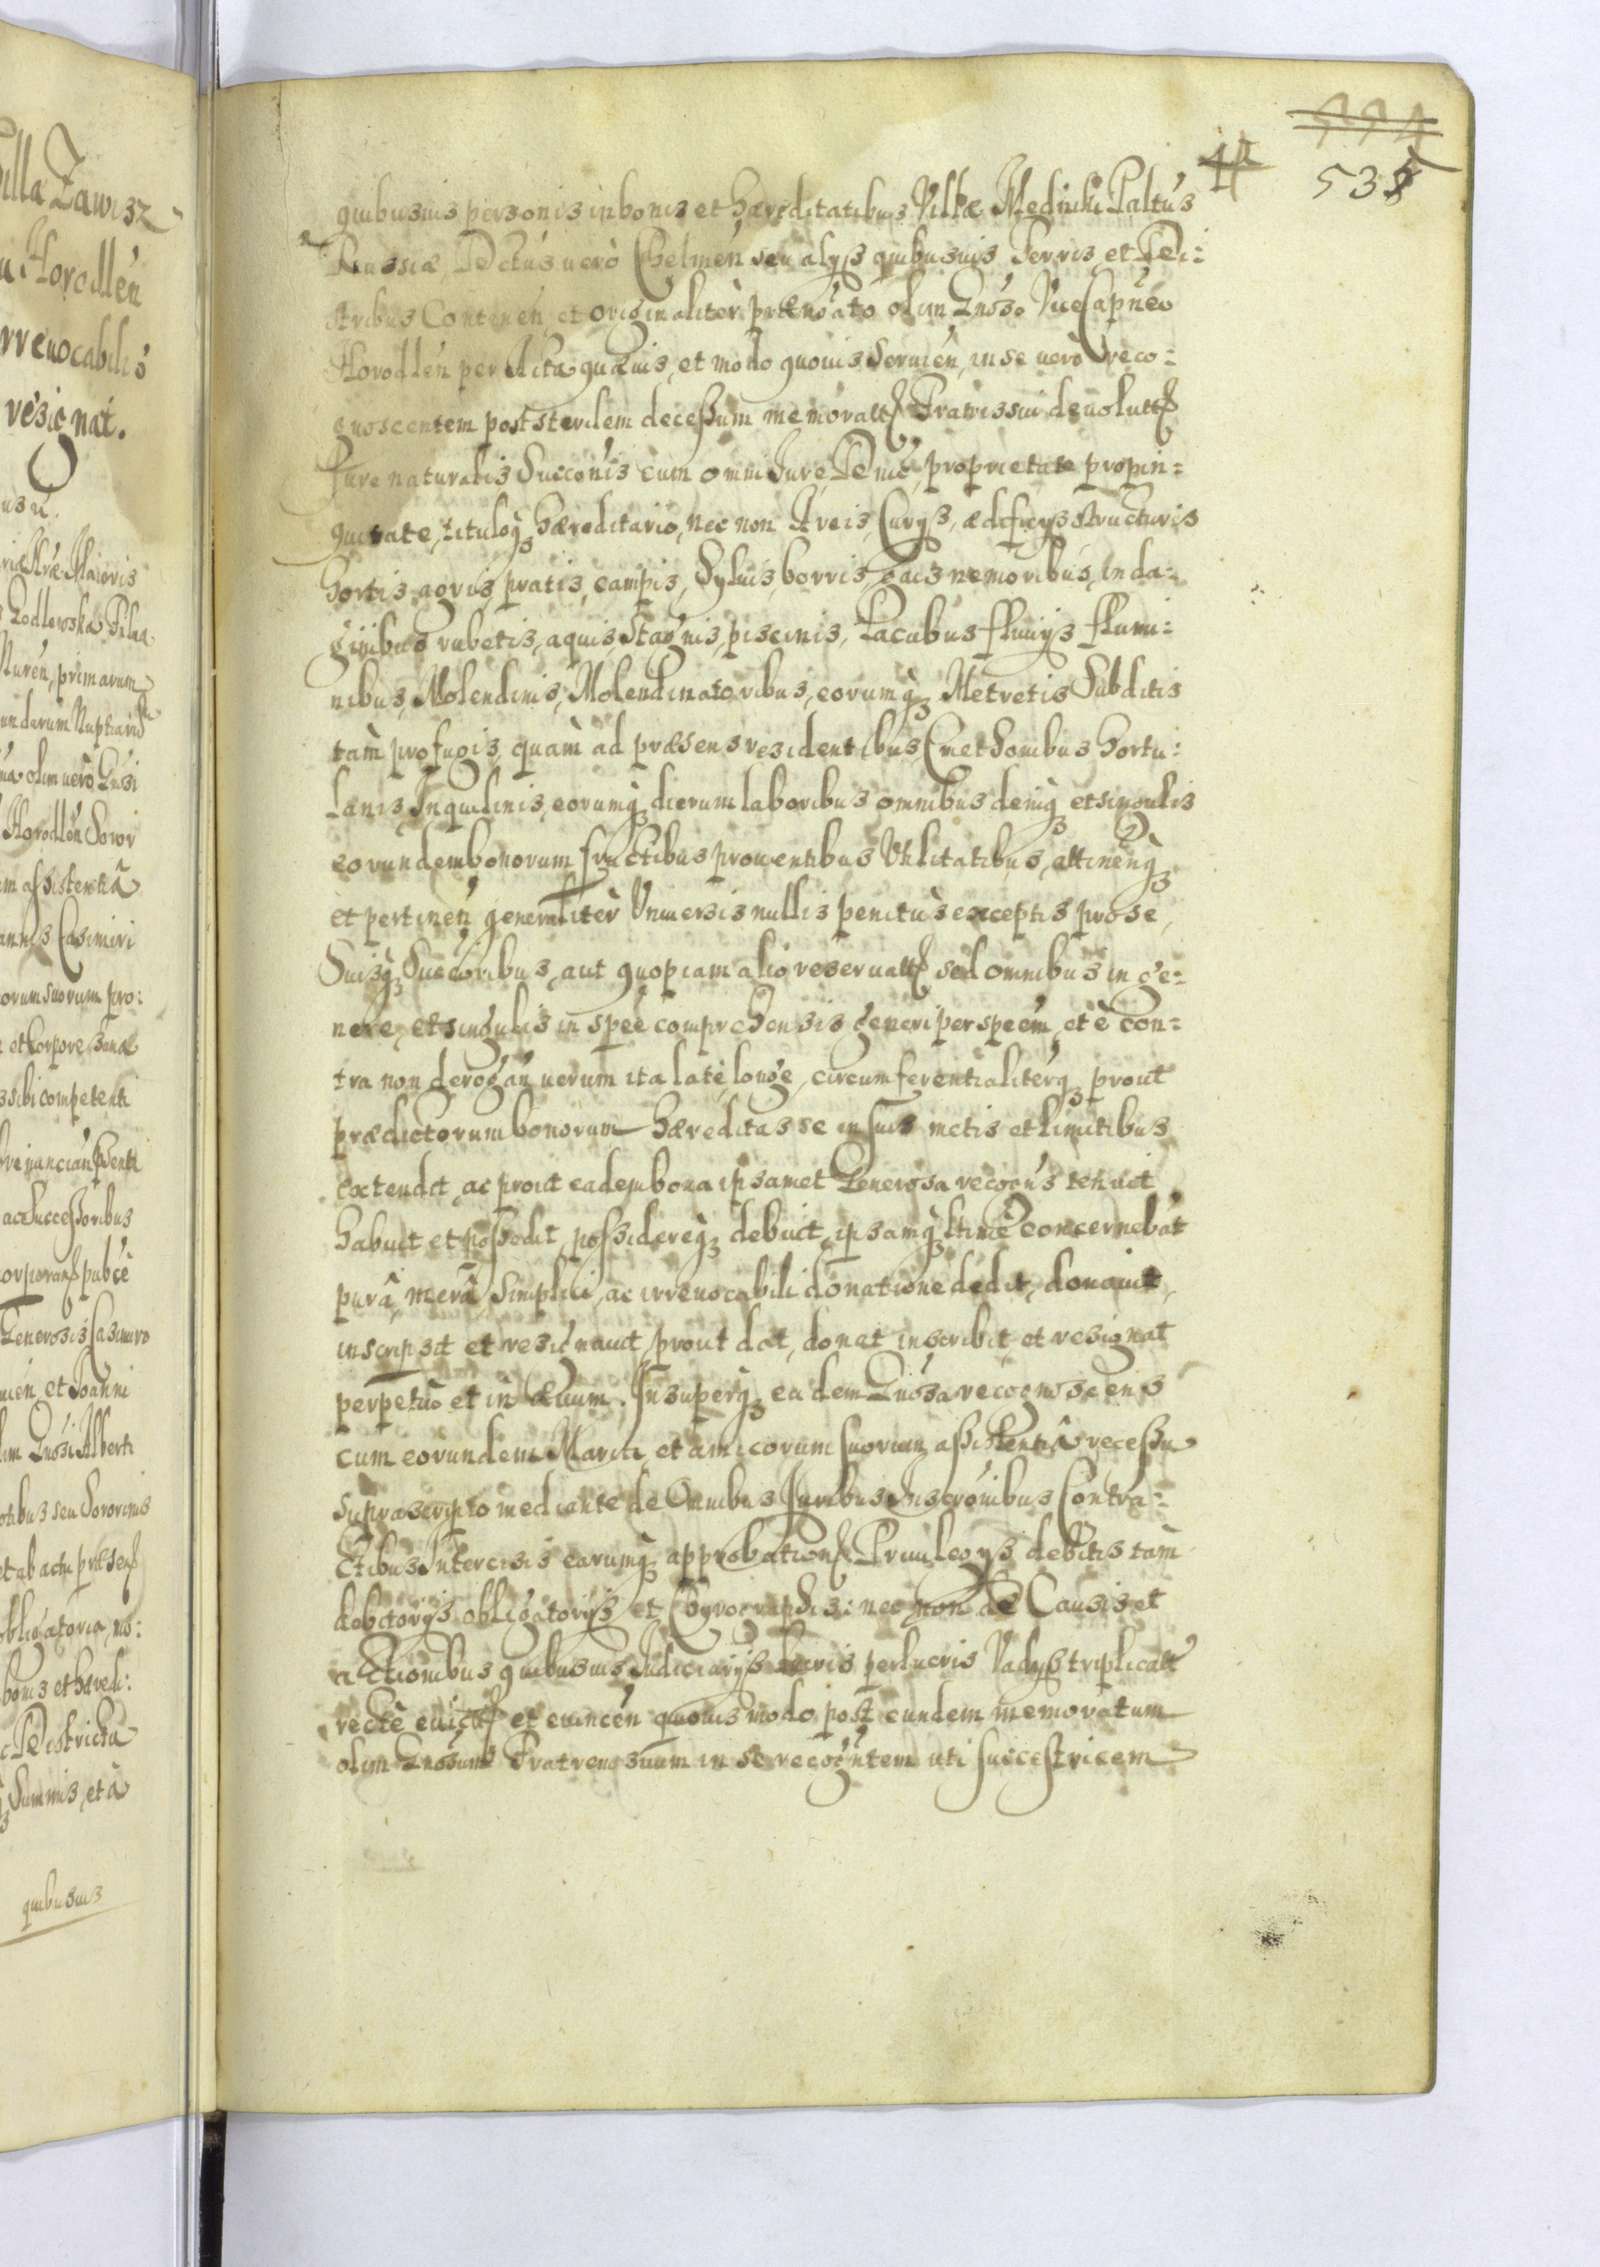 illa Zawisz
Horodlen
rrevocabilis
resignat.
Maioris
Godlewska
Nuren, primarum
undarum Nuptiarum
olim vero Gnosi
Horodlen Soror
assistentiâ
annis Casimiri
orum suorum pro:
et corpore sanæ
s sibi competenti
ac Successoribus
Generosis Casimiro
et Joanni
lim Gnosi Alberti
otibus seu Sororinis
et ab actu præsen
obligatoria, no:
bonis et hæredi:
Districtu
Summis, et à
quibusuis
<s>554</s>
535
quibusuis personis in bonis et hæreditatibus Villæ Medniki Paltûs
Russiæ, Dctûs uerò Chelmen seu alijs quibusuis Terris et Dei:
ctribus Contenen, et originaliter prænoato olim Gnoso ViceCapneo
Horodlen per dicta quæuis, et modo quouis Seruien, in se uerò reco:
gnoscentem post sterilem decessum memoratt Fratris sui deuolutt
Jure naturalis Succonis cum omni Jure, Dnio, proprietate propin:
quitate, tituloq hæreditario, nec non Areis, Curijs, ædificijs structuris
hortis, agris, pratis, campis, Syluis, borris, gais nemoribus, inda:
ginibus rubetis, aquis, Stagnis, piscinis, Lacubus fluuijs flumi:
nibus, Molendinis, Molendinatoribus, eorumq Metretis Subditis
tàm profugis, quàm ad præsens residentibus Cmethonibus hortu:
lanis, Inquilinis, eorumq dierum laboribus omnibus deniq et singulis
eorundem bonorum fructibus prouentibus Vtilitatibus, attinenq
et pertinen generalitèr Vniuersis nullis penitùs exceptis pro se,
Suisq Succoribus, aut quopiam alio reseruatt sed omnibus in ge:
nere, et singulis in speè comprehensis generi per speém, et è con:
tra non derogan uerum ita latè longe, circumferentialiterq prout
prædictorum bonorum hæreditas se in suis metis et limitibus
extendit, ac prout eadem bona ipsamet Generosa recogns tenuit
habuit et possedit, possidereq debuit, ipsamq ltimè concernebat
purâ, merâ, Simplici, ac irreuocabili donatione dedit, donauit,
inscripsit et resignauit, prout dat, donat inscribit, et resignat
perpetuò et in æuum. Insuperq eadem Gnosa recognoscens
cum eorundem Mariti, et amicorum suorum assistentiâ recessu
suprascripto mediante de Omnibus Juribus Inscronibus Contra:
ctibus Intercisis earumq approbation Priuilegijs debitis tàm
debitorijs obligatorijs et Chyrographis: nec non de Causis et
actionibus quibusuis Judiciarijs lucris perlucris Vadijs triplicatt
rectè euict et euincen quouis modo post eundem memoratum
olim Gnosum Fratrem suum in se recogntem uti successricem